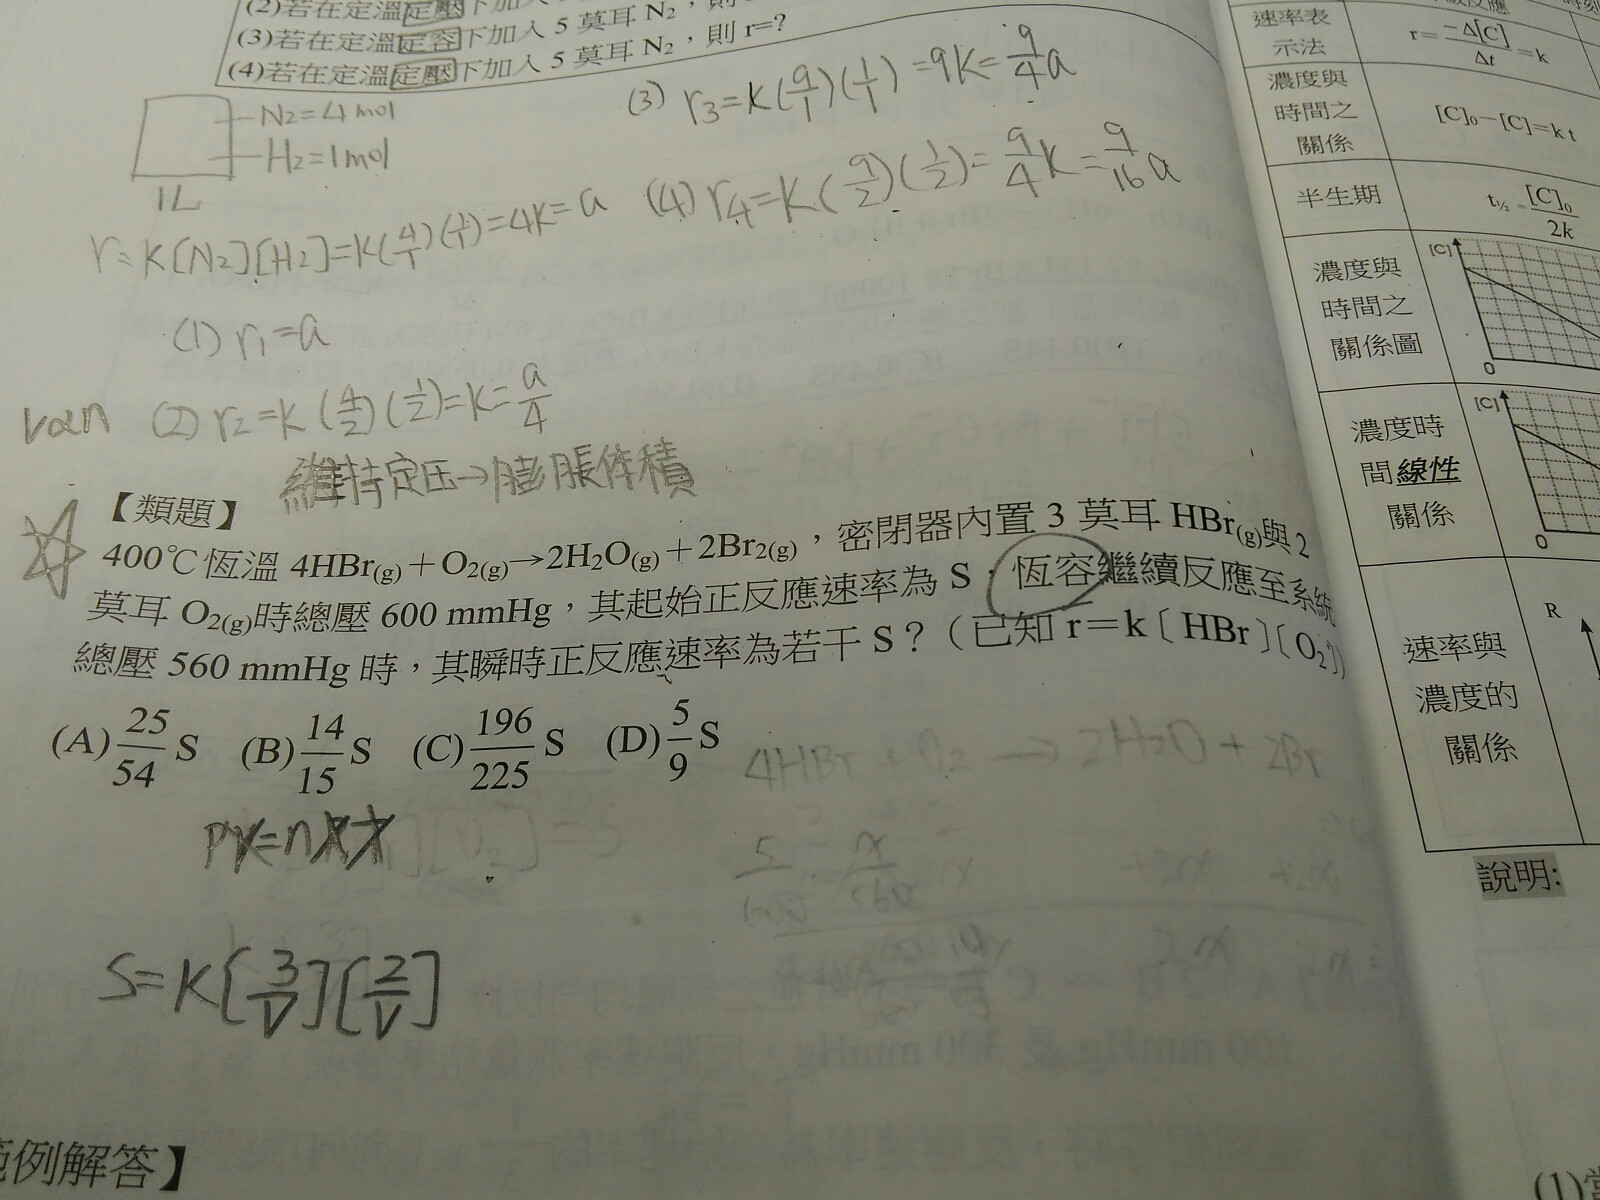 (2)若在定溫定壓下加入5莫耳N₂，則
(3)若在定溫定容下加入 5 莫耳 N₂，則 r=?
(4)若在定溫定壓下加入 5 莫耳 N₂，則 r=?
N₂=4mol
H₂=1mol
1L
(3) r₃=K(9/1)(1/1)=9K=9/4a
(4) r₄=K(9/2)(1/2)=9/4K=9/16a
r=K[N₂][H₂]=K(4/1)(1/1)=4K=a
(1) r₁=a
V∝n (2) r₂=K(4/2)(1/2)=K=a/4
維持定压→膨脹体積
【類題】
400℃恆溫 4HBr(g)＋O₂(g)→2H₂O(g)＋2Br₂(g)，密閉器內置 3 莫耳 HBr(g)與 2
莫耳 O₂(g)時總壓 600 mmHg，其起始正反應速率為 S，恆容繼續反應至系統
總壓 560 mmHg 時，其瞬時正反應速率為若干 S？（已知 r＝k〔HBr〕〔O₂〕）
(A) 25/54 S (B) 14/15 S (C) 196/225 S (D) 5/9 S
4HBr + O₂ → 2H₂O + 2Br
PV=nRT
5/600 x/560
S=K[3/V][2/V]
範例解答】
速率表
示法
r=−Δ[C]/Δt=k
濃度與
時間之
關係
[C]₀−[C]=k t
半生期
t½=[C]₀/2k
濃度與
時間之
關係圖
[C]
0
濃度時
間線性
關係
[C]
0
速率與
濃度的
關係
R
說明: